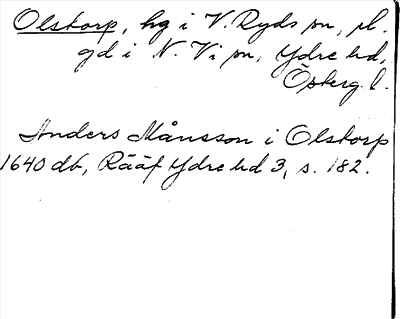 Olstorp, hg i V. Ryds sn, rl.
gd i N. Vi sn, Ydre hd,
Östergl.
Anders Månsson i Olstorp
1640 db, Rääf Ydre hd 3, s. 182.